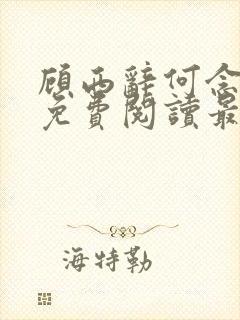 顾西辭何念
免費閱讀最
海特勒